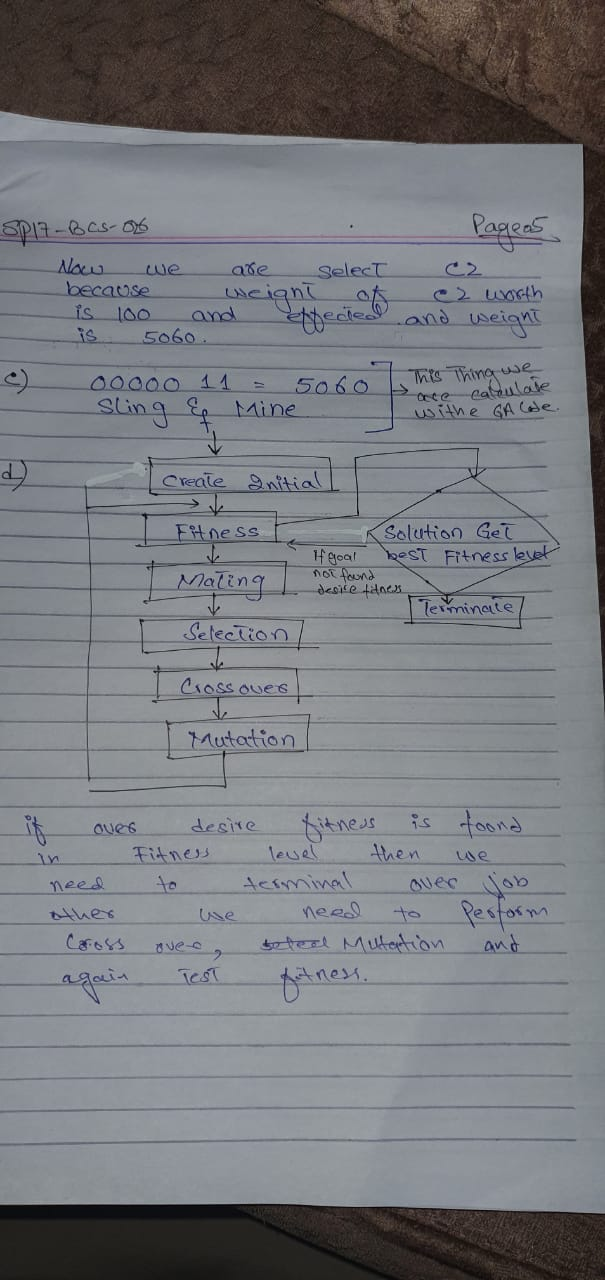 SP17-BCS-06 Page05
Now we are select C2
because weight of c2 worth
is 100 and effected and weight
is 5060.
c) 00000 11 = 5060
Sling & Mine
This Thing we
are calculate
withe GA Code.
d)
Create Initial
Fitness
Mating
Selection
Cross over
Mutation
If goal
not found
desire fitness
Solution Get
best Fitness level
Terminate
if over desire fitness is foond
in Fitness level then we
need to terminal over job
other we need to Perform
Cross over, Mutation and
again Test fitness.